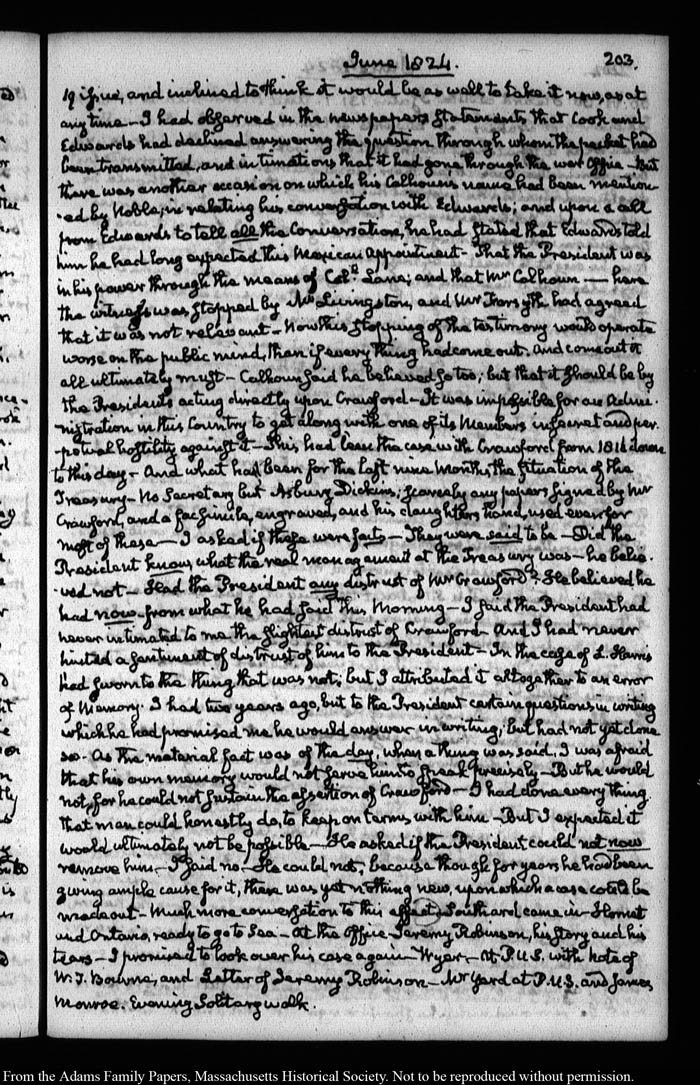 June 1824.
203.
if given, and inclined to think it would be as well to take it now, as at
any time — I had observed in the newspapers statements that Cook and
Edwards had declined answering the question through whom the packet had
been transmitted, and intimations that it had gone through the war Office — But
there was another occasion on which his Calhoun's name had been mention
-ed by Noble, in relating his conversation with Edwards; and upon a call
from Edwards to tell all the Conversation, he had stated that Edwards told
him he had long expected this Mexican Appointment — That the President was
in his power through the means of Col.l Lane; and that Mr Calhoun — here
the witness was stopped by Mr Livingston, and Mr Forsyth had agreed
that it was not relevant — Now this stopping of the testimony would operate
worse on the public mind, than if every thing had come out. And come out it
all ultimately must — Calhoun said he believed so too; but that it should be by
the President's acting directly upon Crawford — It was impossible for an Admi-
nistration in this Country to get along with one of its Members in secret and per-
-petual hostility against it — This had been the case with Crawford from 1816 down
to this day — And what had been for the last nine Months, the situation of the
Treasury — No Secretary but Asbury Dickins; scarcely any papers signed by Mr
Crawford, and a fac simile, engraved, and his daughter's hand, used even for
most of these — I asked if these were facts — They were said to be — Did the
President know, what the real management at the Treasury was — he belie-
-ved not — Had the President any distrust of Mr Crawford? He believed he
had now from what he had said this Morning — I said the President had
never intimated to me the slightest distrust of Crawford — And I had never
hinted a sentiment of distrust of him to the President — In the case of L. Harris
had sworn to the thing that was not; but I attributed it altogether to an error
of Memory. I had two years ago, put to the President certain questions, in writing
which he had promised me he would answer in writing, but had not yet done
so. As the material fact was of the day, when a thing was said, I was afraid
that his own memory would not serve him to speak precisely — But he would
not, for he could not sustain the assertion of Crawford — I had done every thing
that man could honestly do, to keep on terms with him — But I expected it
would ultimately not be possible — He asked if the President could not now
remove him — I said no — He could not, because though for years he had been
giving ample cause for it, there was yet nothing new, upon which a case could be
made out — Much more conversation to this effect, Southard came in — Hornet
and Ontario, ready to go to Sea — At the Office Jeremy Robinson, his story and his
tears — I promised to look over his case again — Wyer — At P.U.S. with Note of
W. J. Bowne, and Letter of Jeremy Robinson — Mr Yard at P.U.S. and James
Monroe. Evening Solitary walk.
From the Adams Family Papers, Massachusetts Historical Society. Not to be reproduced without permission.